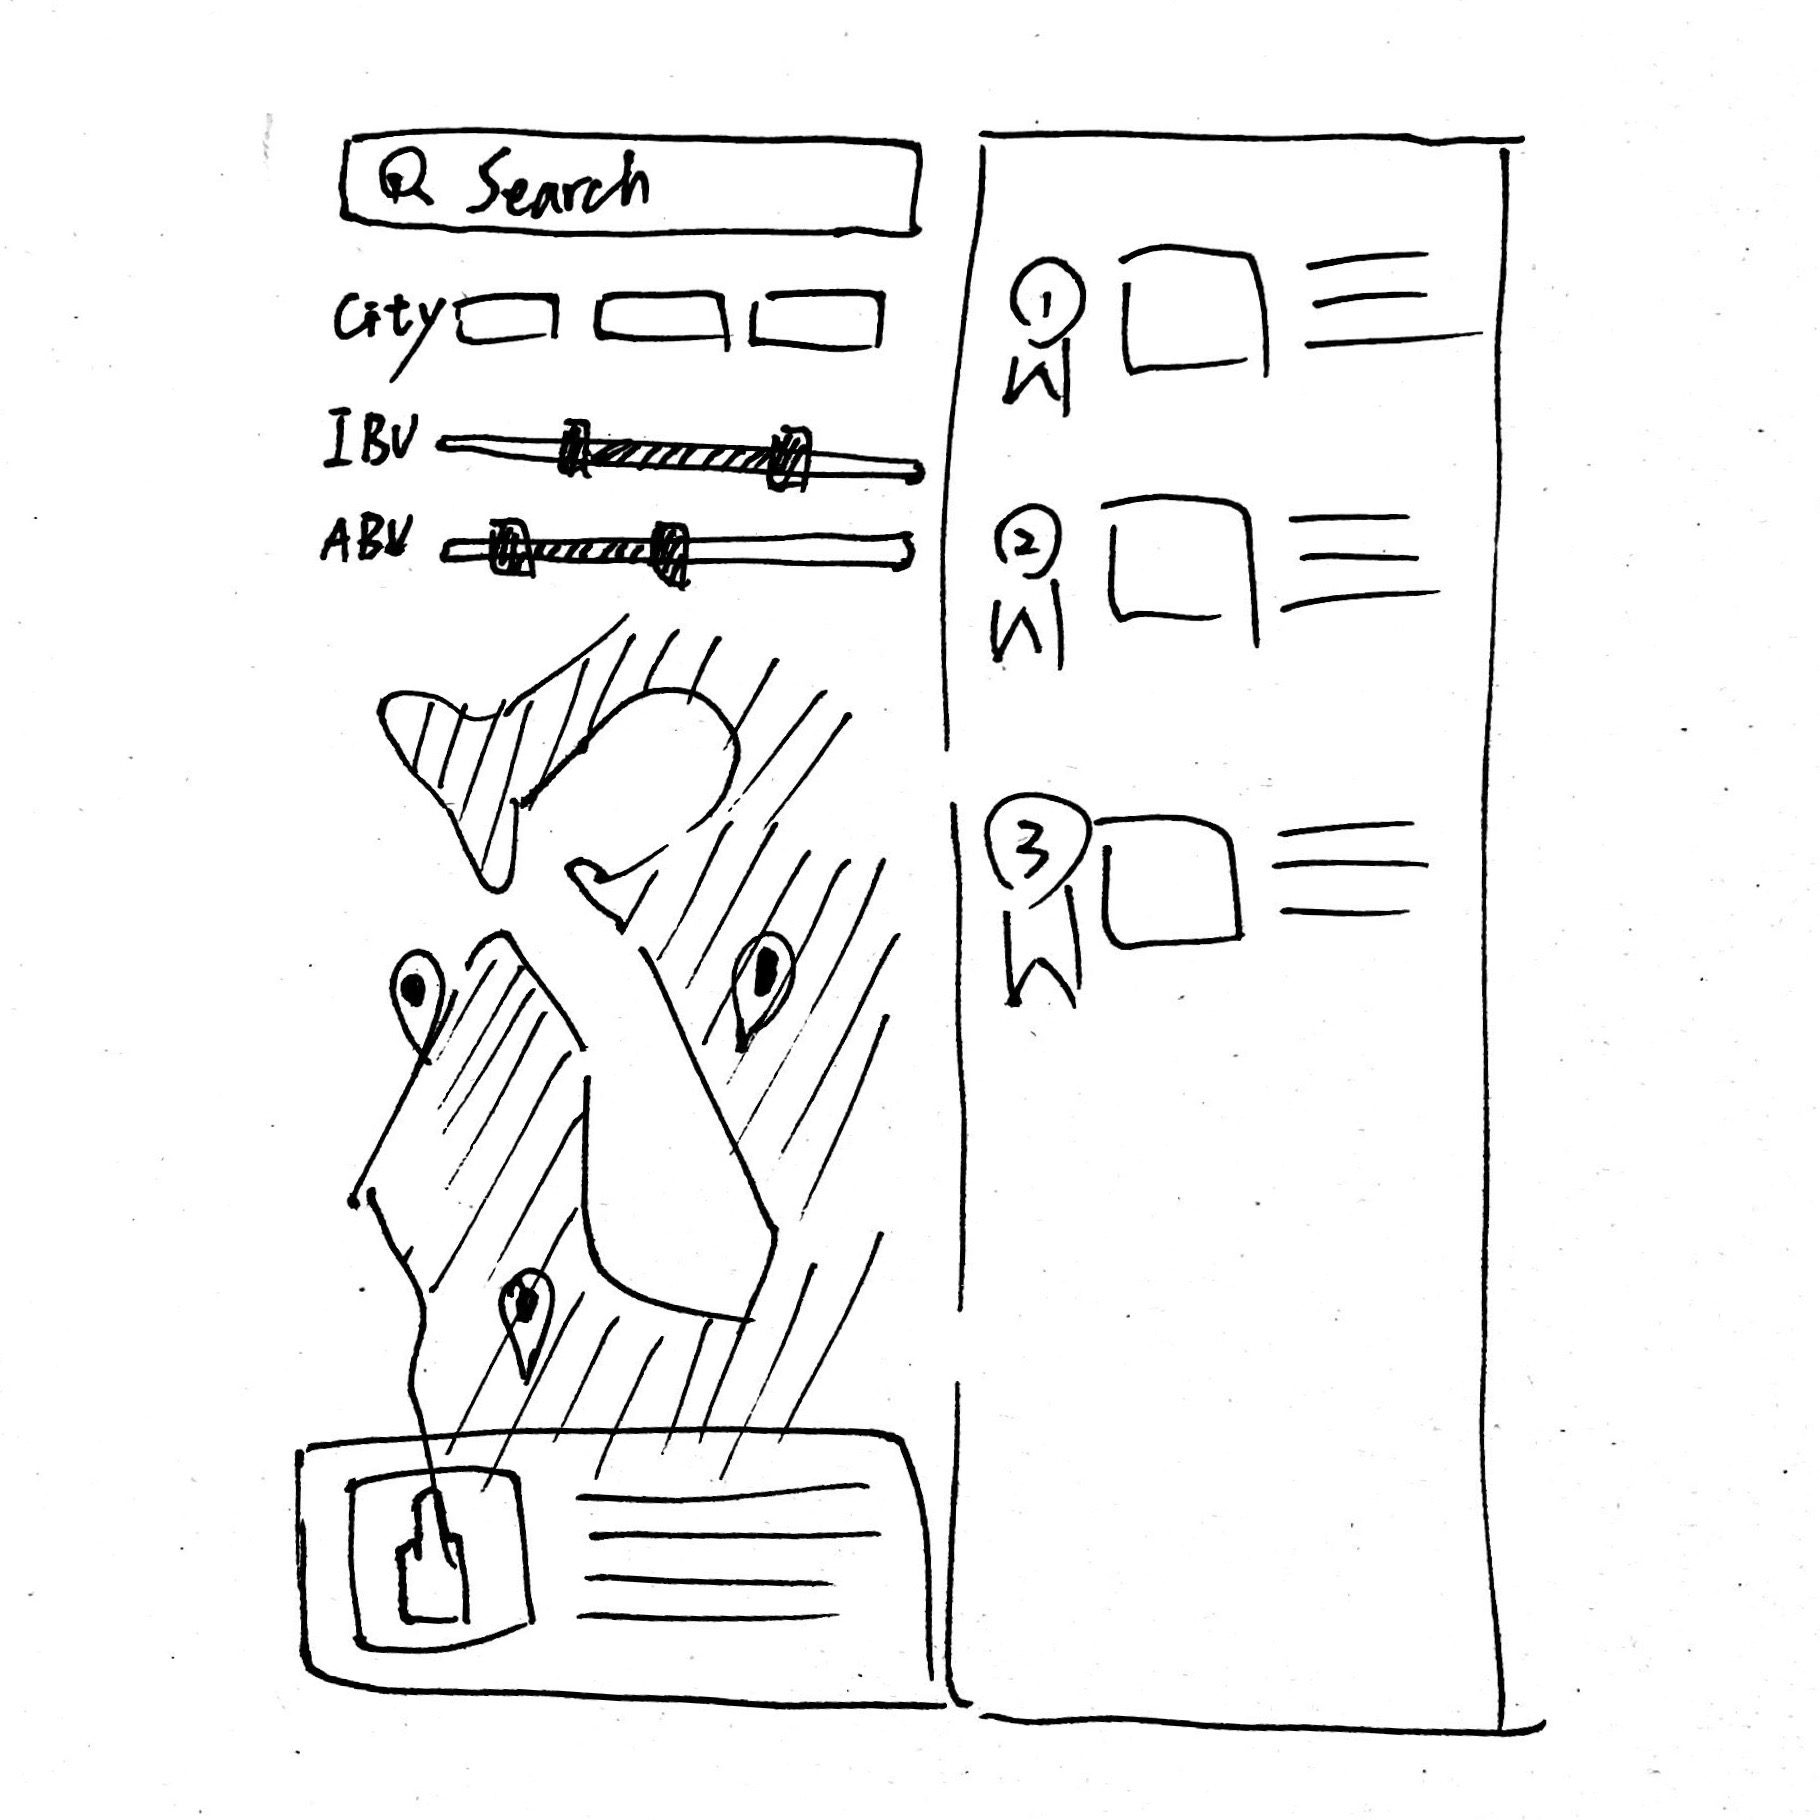 Search
City
IBU
ABV
1
2
3